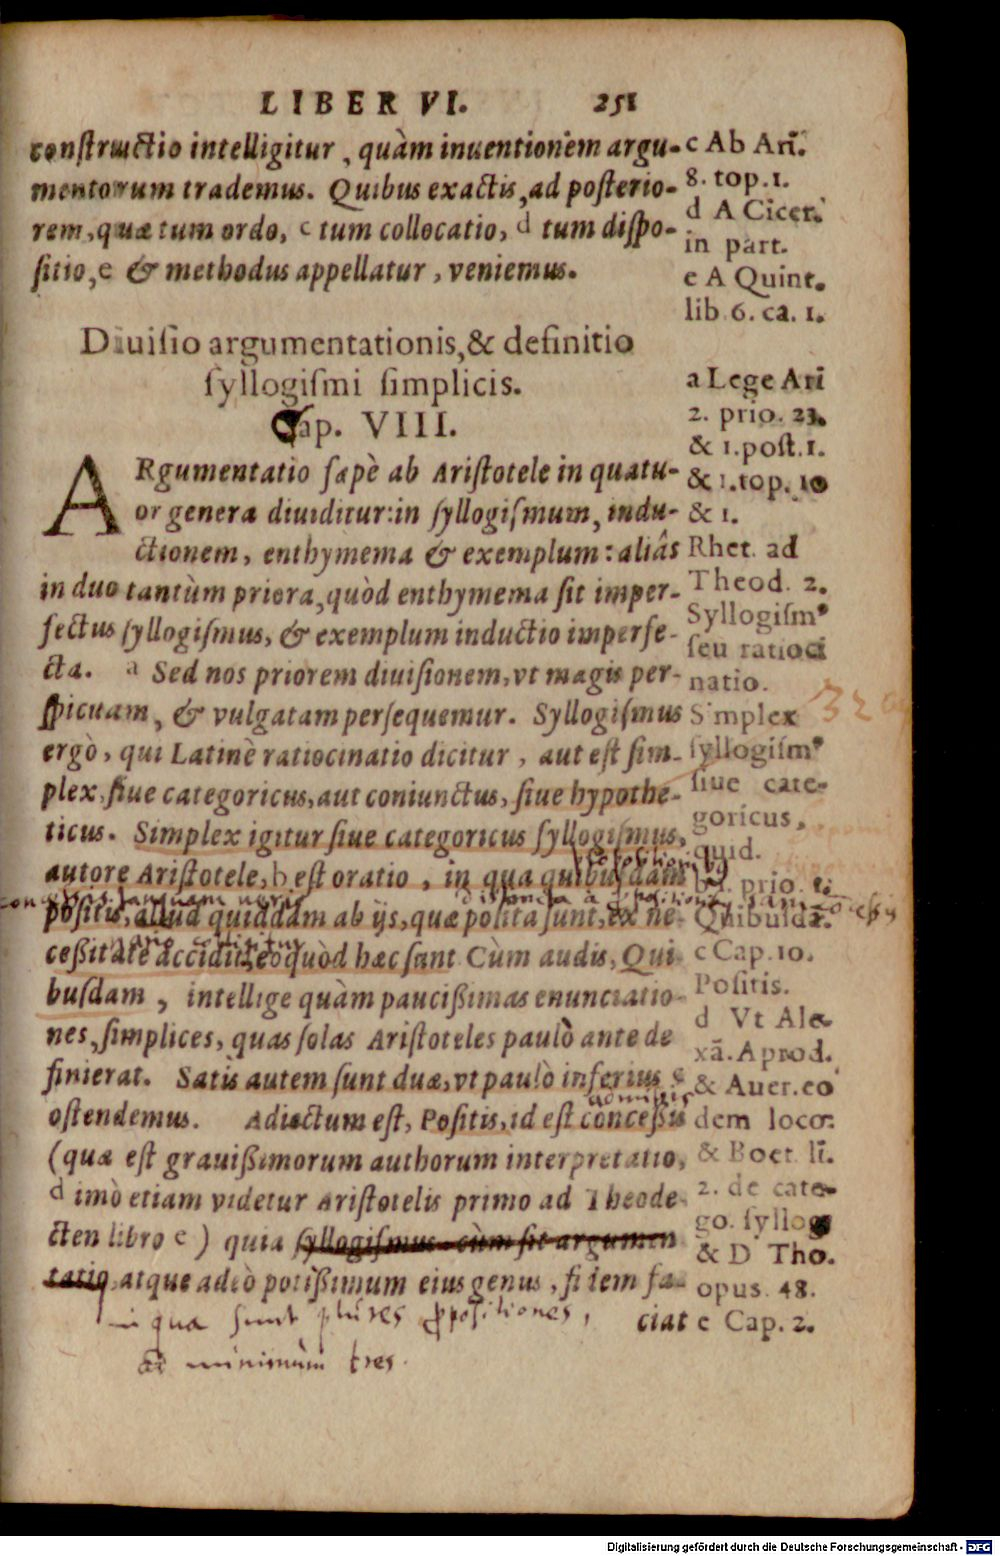 LIBER VI. 251
constructio intelligitur, quàm inuentionem argu-
mentorum trademus. Quibus exactis, ad posterio-
rem, quæ tum ordo, c tum collocatio, d tum dispo-
sitio, e & methodus appellatur, veniemus.
c Ab Arĩ.
8. top. 1.
d A Cicer.
in part.
e A Quint.
lib. 6. ca. 1.
Diuisio argumentationis, & definitio
syllogismi simplicis.
Cap. VIII.
ARgumentatio sæpè ab Aristotele in quatu-
or genera diuiditur: in syllogismum, indu-
ctionem, enthymema & exemplum: aliâs
in duo tantùm priora, quòd enthymema sit imper-
fectus syllogismus, & exemplum inductio imperfe-
cta. a Sed nos priorem diuisionem, vt magis per-
spicuam, & vulgatam persequemur. Syllogismus
ergò, qui Latinè ratiocinatio dicitur, aut est sim-
plex, siue categoricus, aut coniunctus, siue hypothe-
ticus. Simplex igitur siue categoricus syllogismus,
autore Aristotele, b est oratio, in qua quibusdam
positis, aliud quiddam ab ijs, quæ posita sunt, ex ne-
cessitate accidit, eò quòd hæc sunt Cùm audis, Qui-
busdam, intellige quàm paucissimas enunciatio-
nes, simplices, quas solas Aristoteles paulò ante de
finierat. Satis autem sunt duæ, vt paulò inferius c
ostendemus. Adiectum est, Positis, id est concessis
(quæ est grauissimorum authorum interpretatio,
d imò etiam videtur Aristotelis primo ad Theode-
cten libro e) quia syllogismus cùm sit argumen
tatio, atque adeò potissimum eius genus, fidem fa-
ciat
a Lege Arĩ
2. prio. 23.
& 1. post. 1.
& 1. top. 10
& 1.
Rhet. ad
Theod. 2.
Syllogism⁹
seu ratioci
natio.
Simplex
syllogism⁹
siue cate-
goricus,
quid.
b 1. prio. 1.
Quibusdã.
c Cap. 10.
Positis.
d Vt Ale-
xã. Aprod.
& Auer. eo
dem loco.
& Boet. lĩ.
2. de cate-
go. syllog.
& D Tho.
opus. 48.
e Cap. 2.
in qua sunt plures ꝓpositiones,
ad minimùm tres.